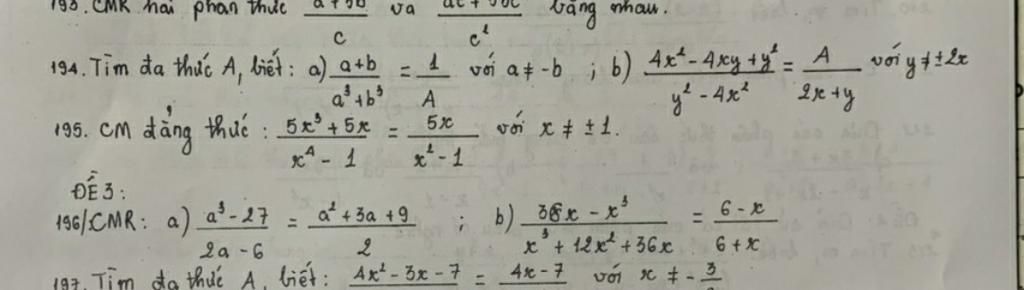 193. CMR hai phân thức (a+3b)/c và /c² bằng nhau.
194. Tìm đa thức A, biết: a) (a+b)/(a³+b³) = 1/A với a ≠ -b ; b) (4x²-4xy+y²)/(y²-4x²) = A/(2x+y) với y ≠ ±2x
195. CM đẳng thức : (5x³+5x)/(x⁴-1) = 5x/(x²-1) với x ≠ ±1.
ĐỀ 3:
196/CMR: a) (a³-27)/(2a-6) = (a²+3a+9)/2 ; b) (36x-x³)/(x³+12x²+36x) = (6-x)/(6+x)
197. Tìm đa thức A, biết: 4x²-3x-7 = 4x-7 với x ≠ -3